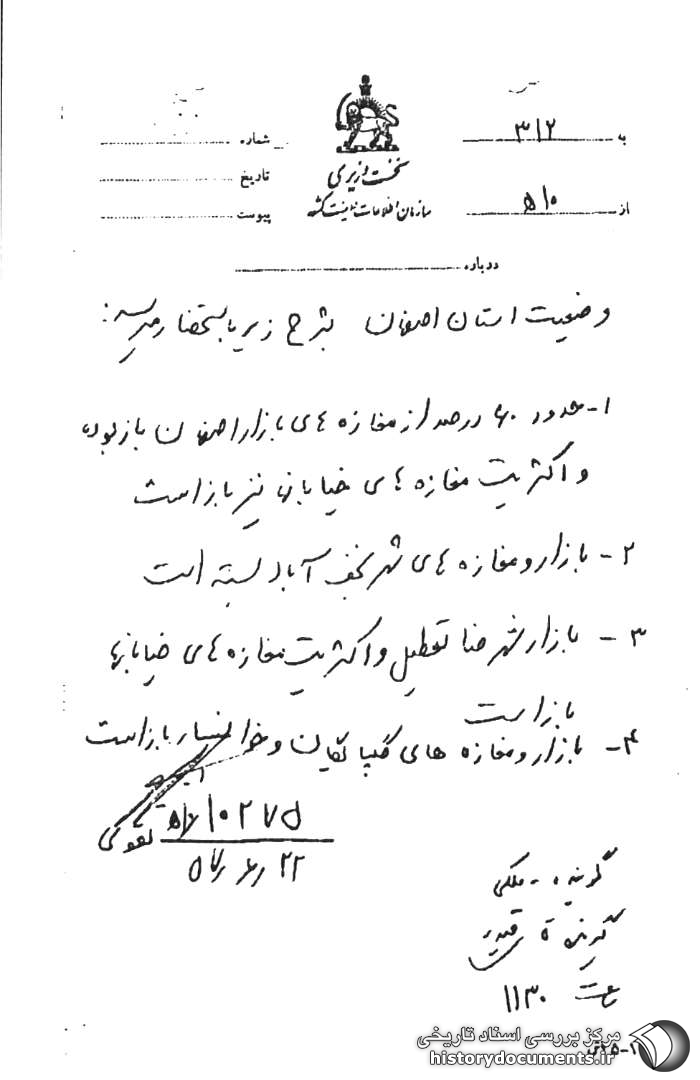 به ۳۱۲
از ۵۱۰
نخست وزیری
سازمان اطلاعات و امنیت کشور
شماره
تاریخ
پیوست
درباره
وضعیت استان اصفهان بشرح زیر باستحضار میرسد:
۱- حدود ۶۰ درصد از مغازه های بازار اصفهان باز بوده
و اکثریت مغازه های خیابانها نیز باز است
۲- بازار و مغازه های شهر نجف آباد بسته است
۳- بازار شهرضا تعطیل و اکثریت مغازه های خیابانها
باز است
۴- بازار و مغازه های گلپایگان و خوانسار باز است
تقوی
۲۲ /۶ /۵۷
گوینده - ملکی
گیرنده
ساعت ۱۱۳۰
۲۵-۱
مرکز بررسی اسناد تاریخی
historydocuments.ir